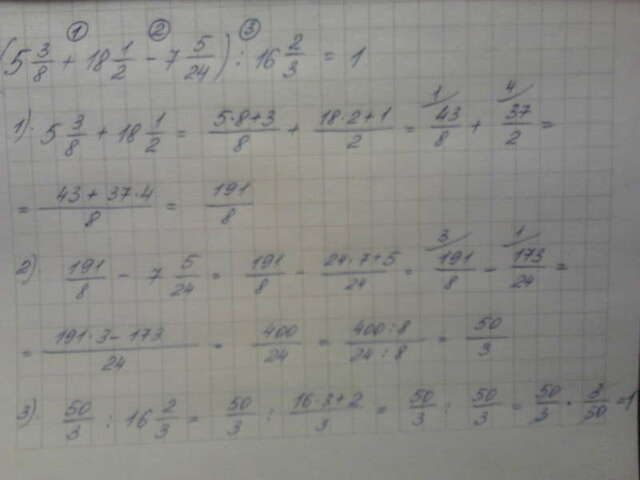 ① ② ③
(5 3/8 + 18 1/2 - 7 5/24) : 16 2/3 = 1
1). 5 3/8 + 18 1/2 = (5·8+3)/8 + (18·2+1)/2 = ¹⁄ 43/8 + ⁴⁄ 37/2 =
= (43 + 37·4)/8 = 191/8
2). 191/8 - 7 5/24 = 191/8 - (24·7+5)/24 = ³⁄ 191/8 - ¹⁄ 173/24 =
= (191·3 - 173)/24 = 400/24 = (400:8)/(24:8) = 50/3
3). 50/3 : 16 2/3 = 50/3 : (16·3+2)/3 = 50/3 : 50/3 = 50/3 · 3/50 = 1